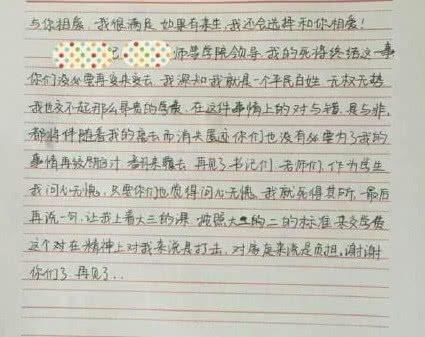 与你相爱，我很满足，如果有来生，我还会选择和你相爱！
记 师学院领导，我的死将终结这一事
你们没必要再变来变去，我深知我就是一个平民百姓，无权无势
我也交不起那么昂贵的学费，在这件事情上的对与错，是与非，
都将伴随着我的离去而消失匿迹，你们也没有必要为了我的
事情再绞尽脑汁 翻来覆去，再见了书记们、老师们，作为学生
我问心无愧，只要你们也觉得问心无愧，我就死得其所，最后
再说一句，让我上着大三的课，按照大的二的标准来交学费
这个对在精神上对我来说是打击，对家庭来说是负担，谢谢
你们了，再见了..